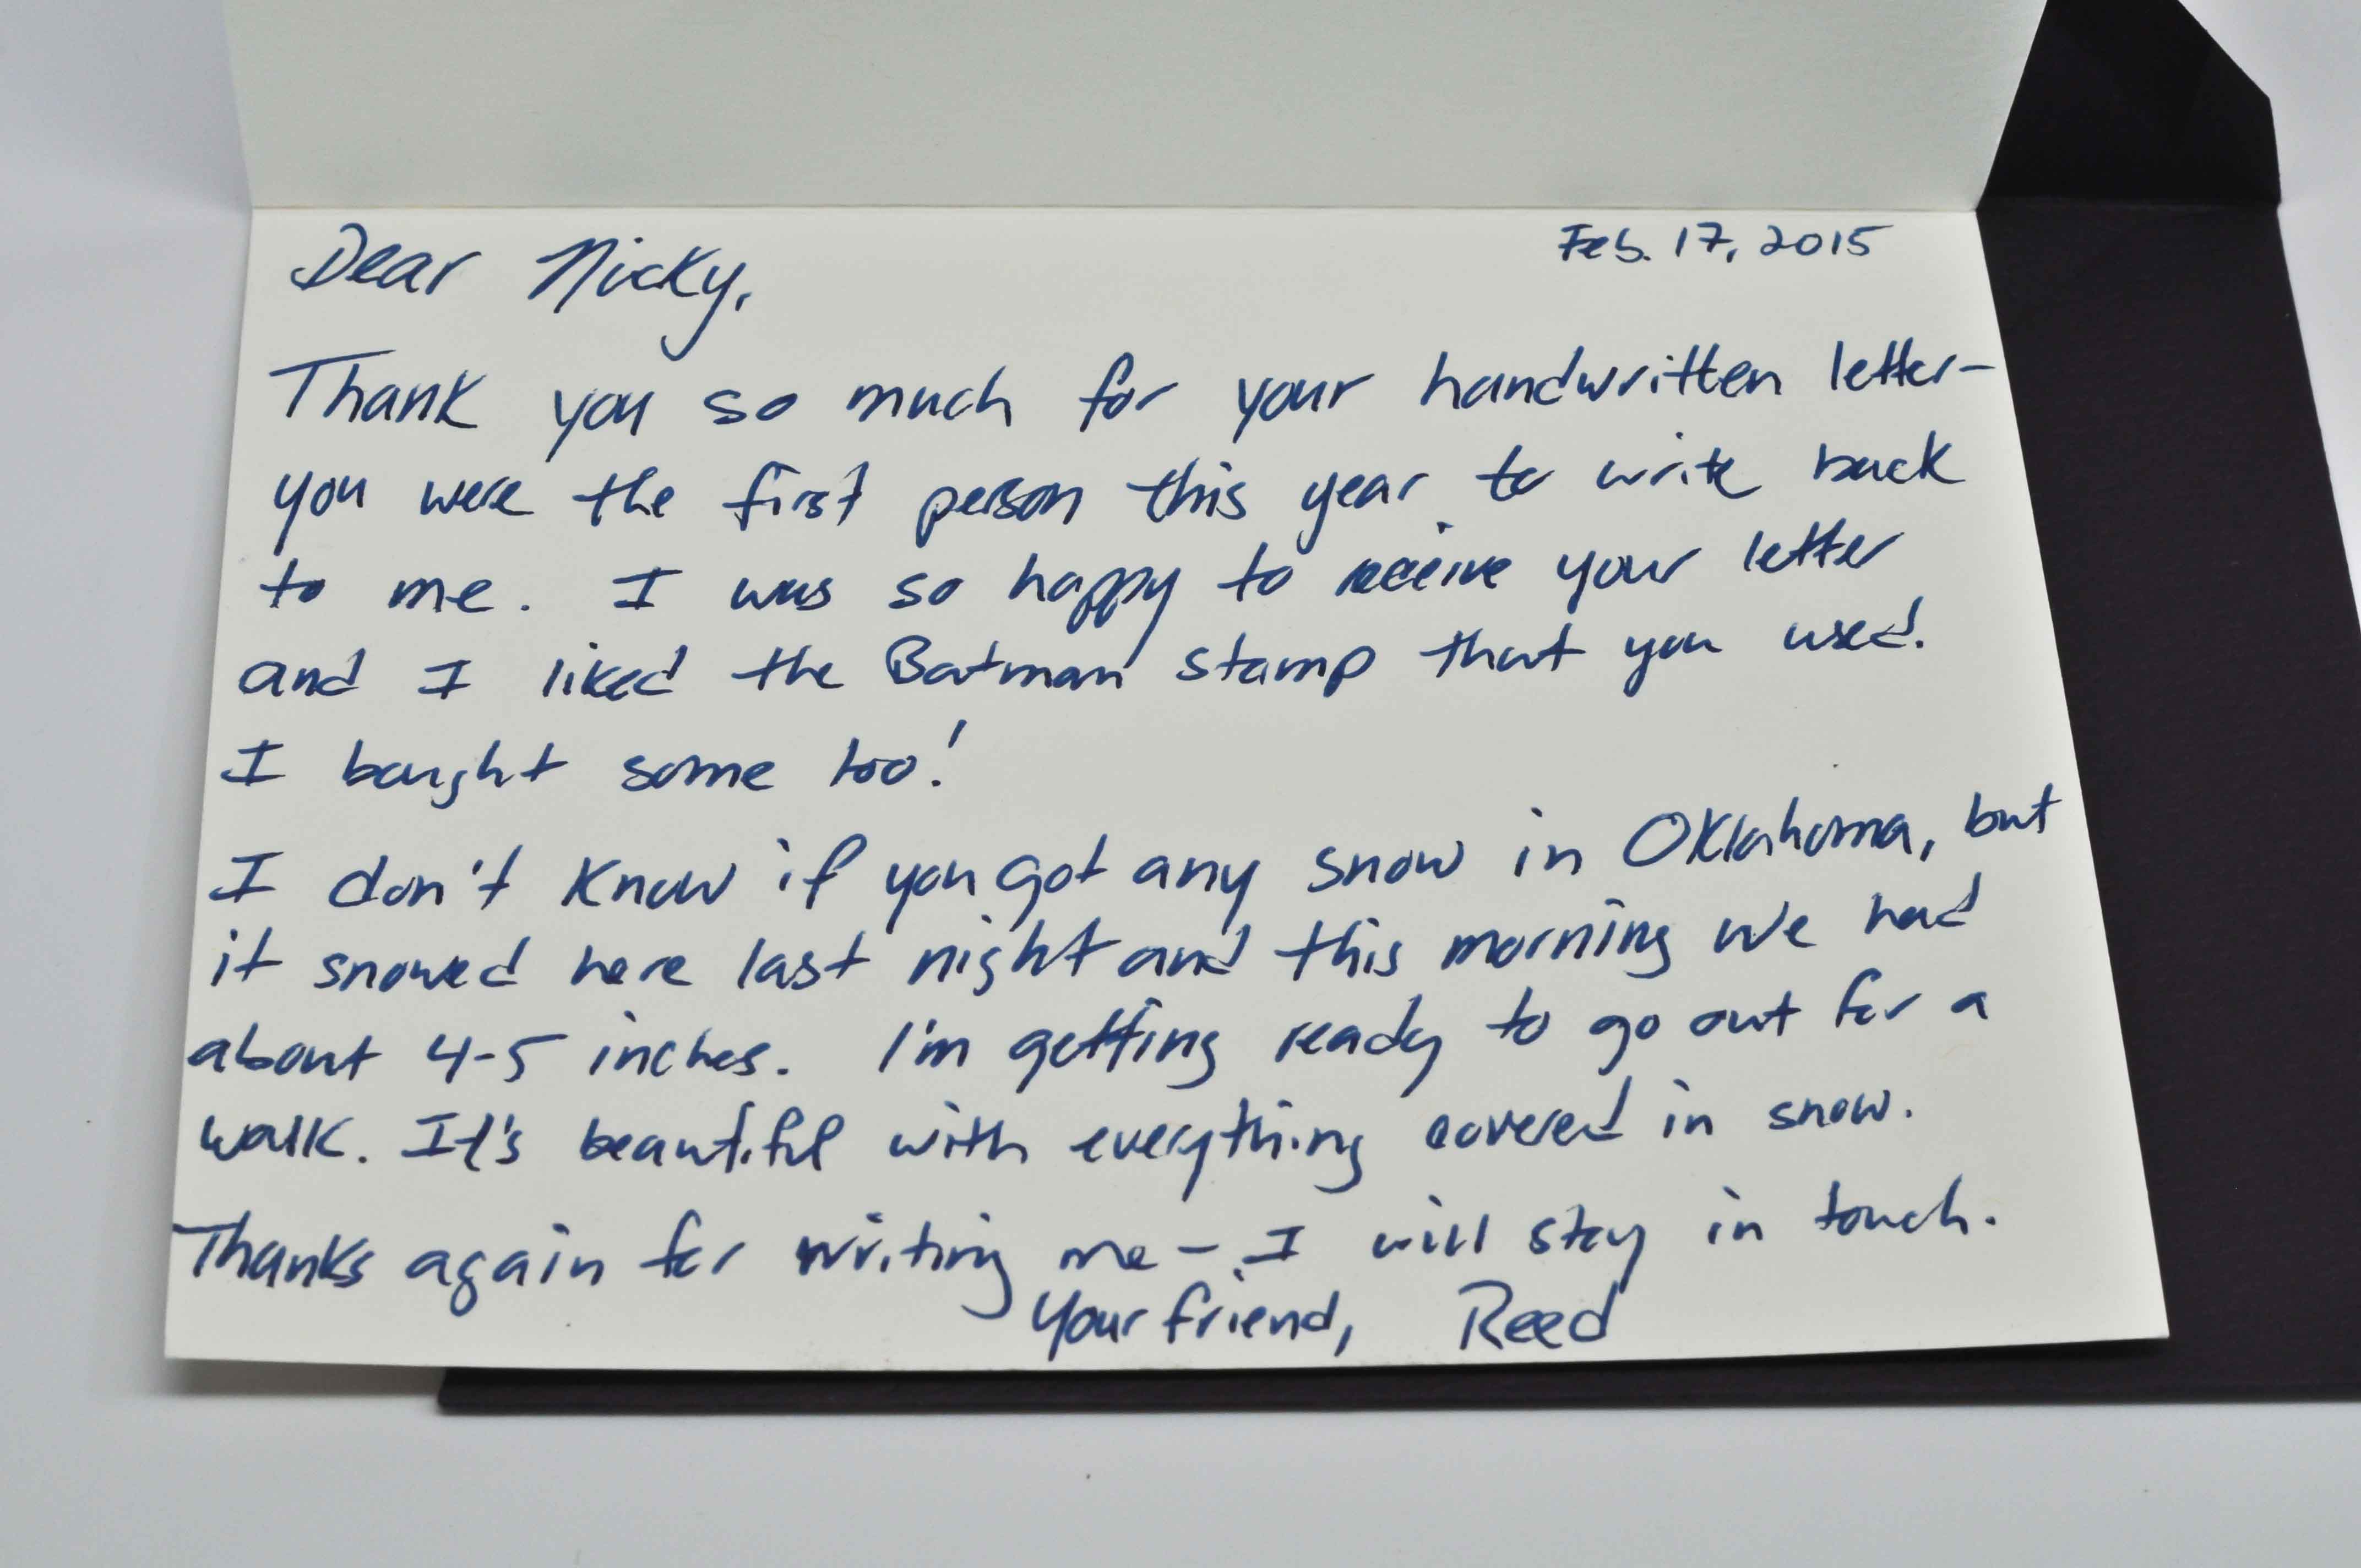 Feb. 17, 2015
Dear Nicky,
Thank you so much for your handwritten letter-
you were the first person this year to write back
to me. I was so happy to receive your letter
and I liked the Batman stamp that you used.
I bought some too!
I don't know if you got any snow in Oklahoma, but
it snowed here last night and this morning we had
about 4-5 inches. I'm getting ready to go out for a
walk. It's beautiful with everything covered in snow.
Thanks again for writing me - I will stay in touch.
Your friend, Reed